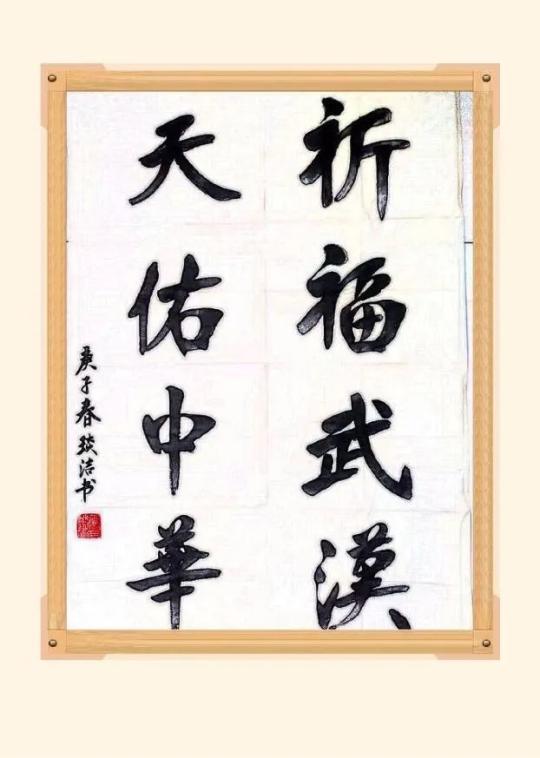 祈福武漢
天佑中華
庚子春琰洁书